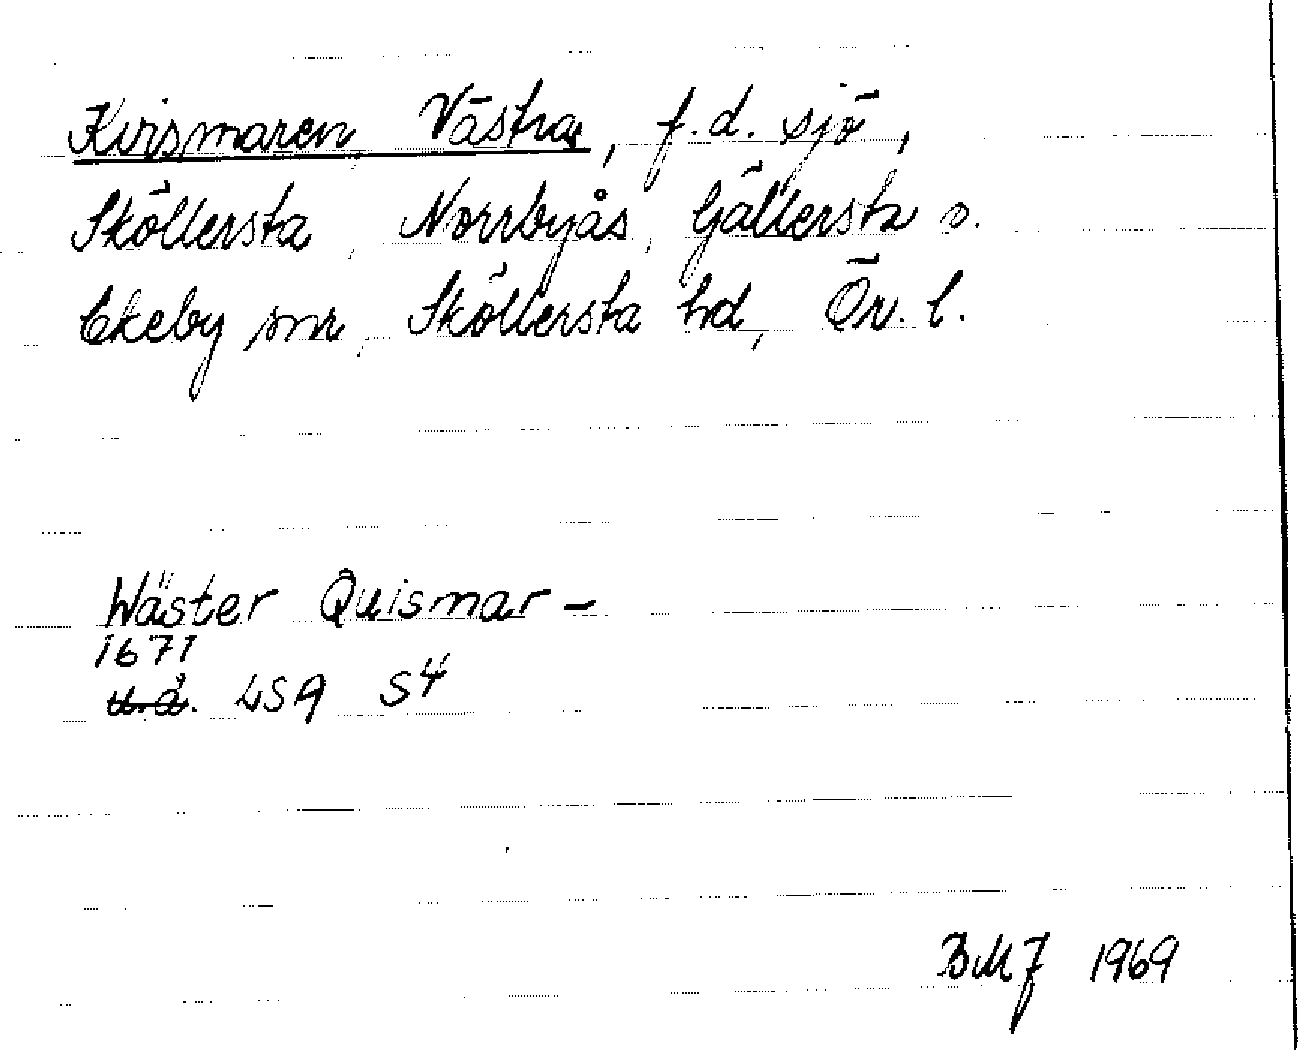 Kvismaren, Västra, f.d. sjö,
Sköllersta, Norrbyås, Gällersta o.
Ekeby snr, Sköllersta hd, Ör. l.
Wäster Quismar –
1671
u.å. LSA S4
BMJ 1969